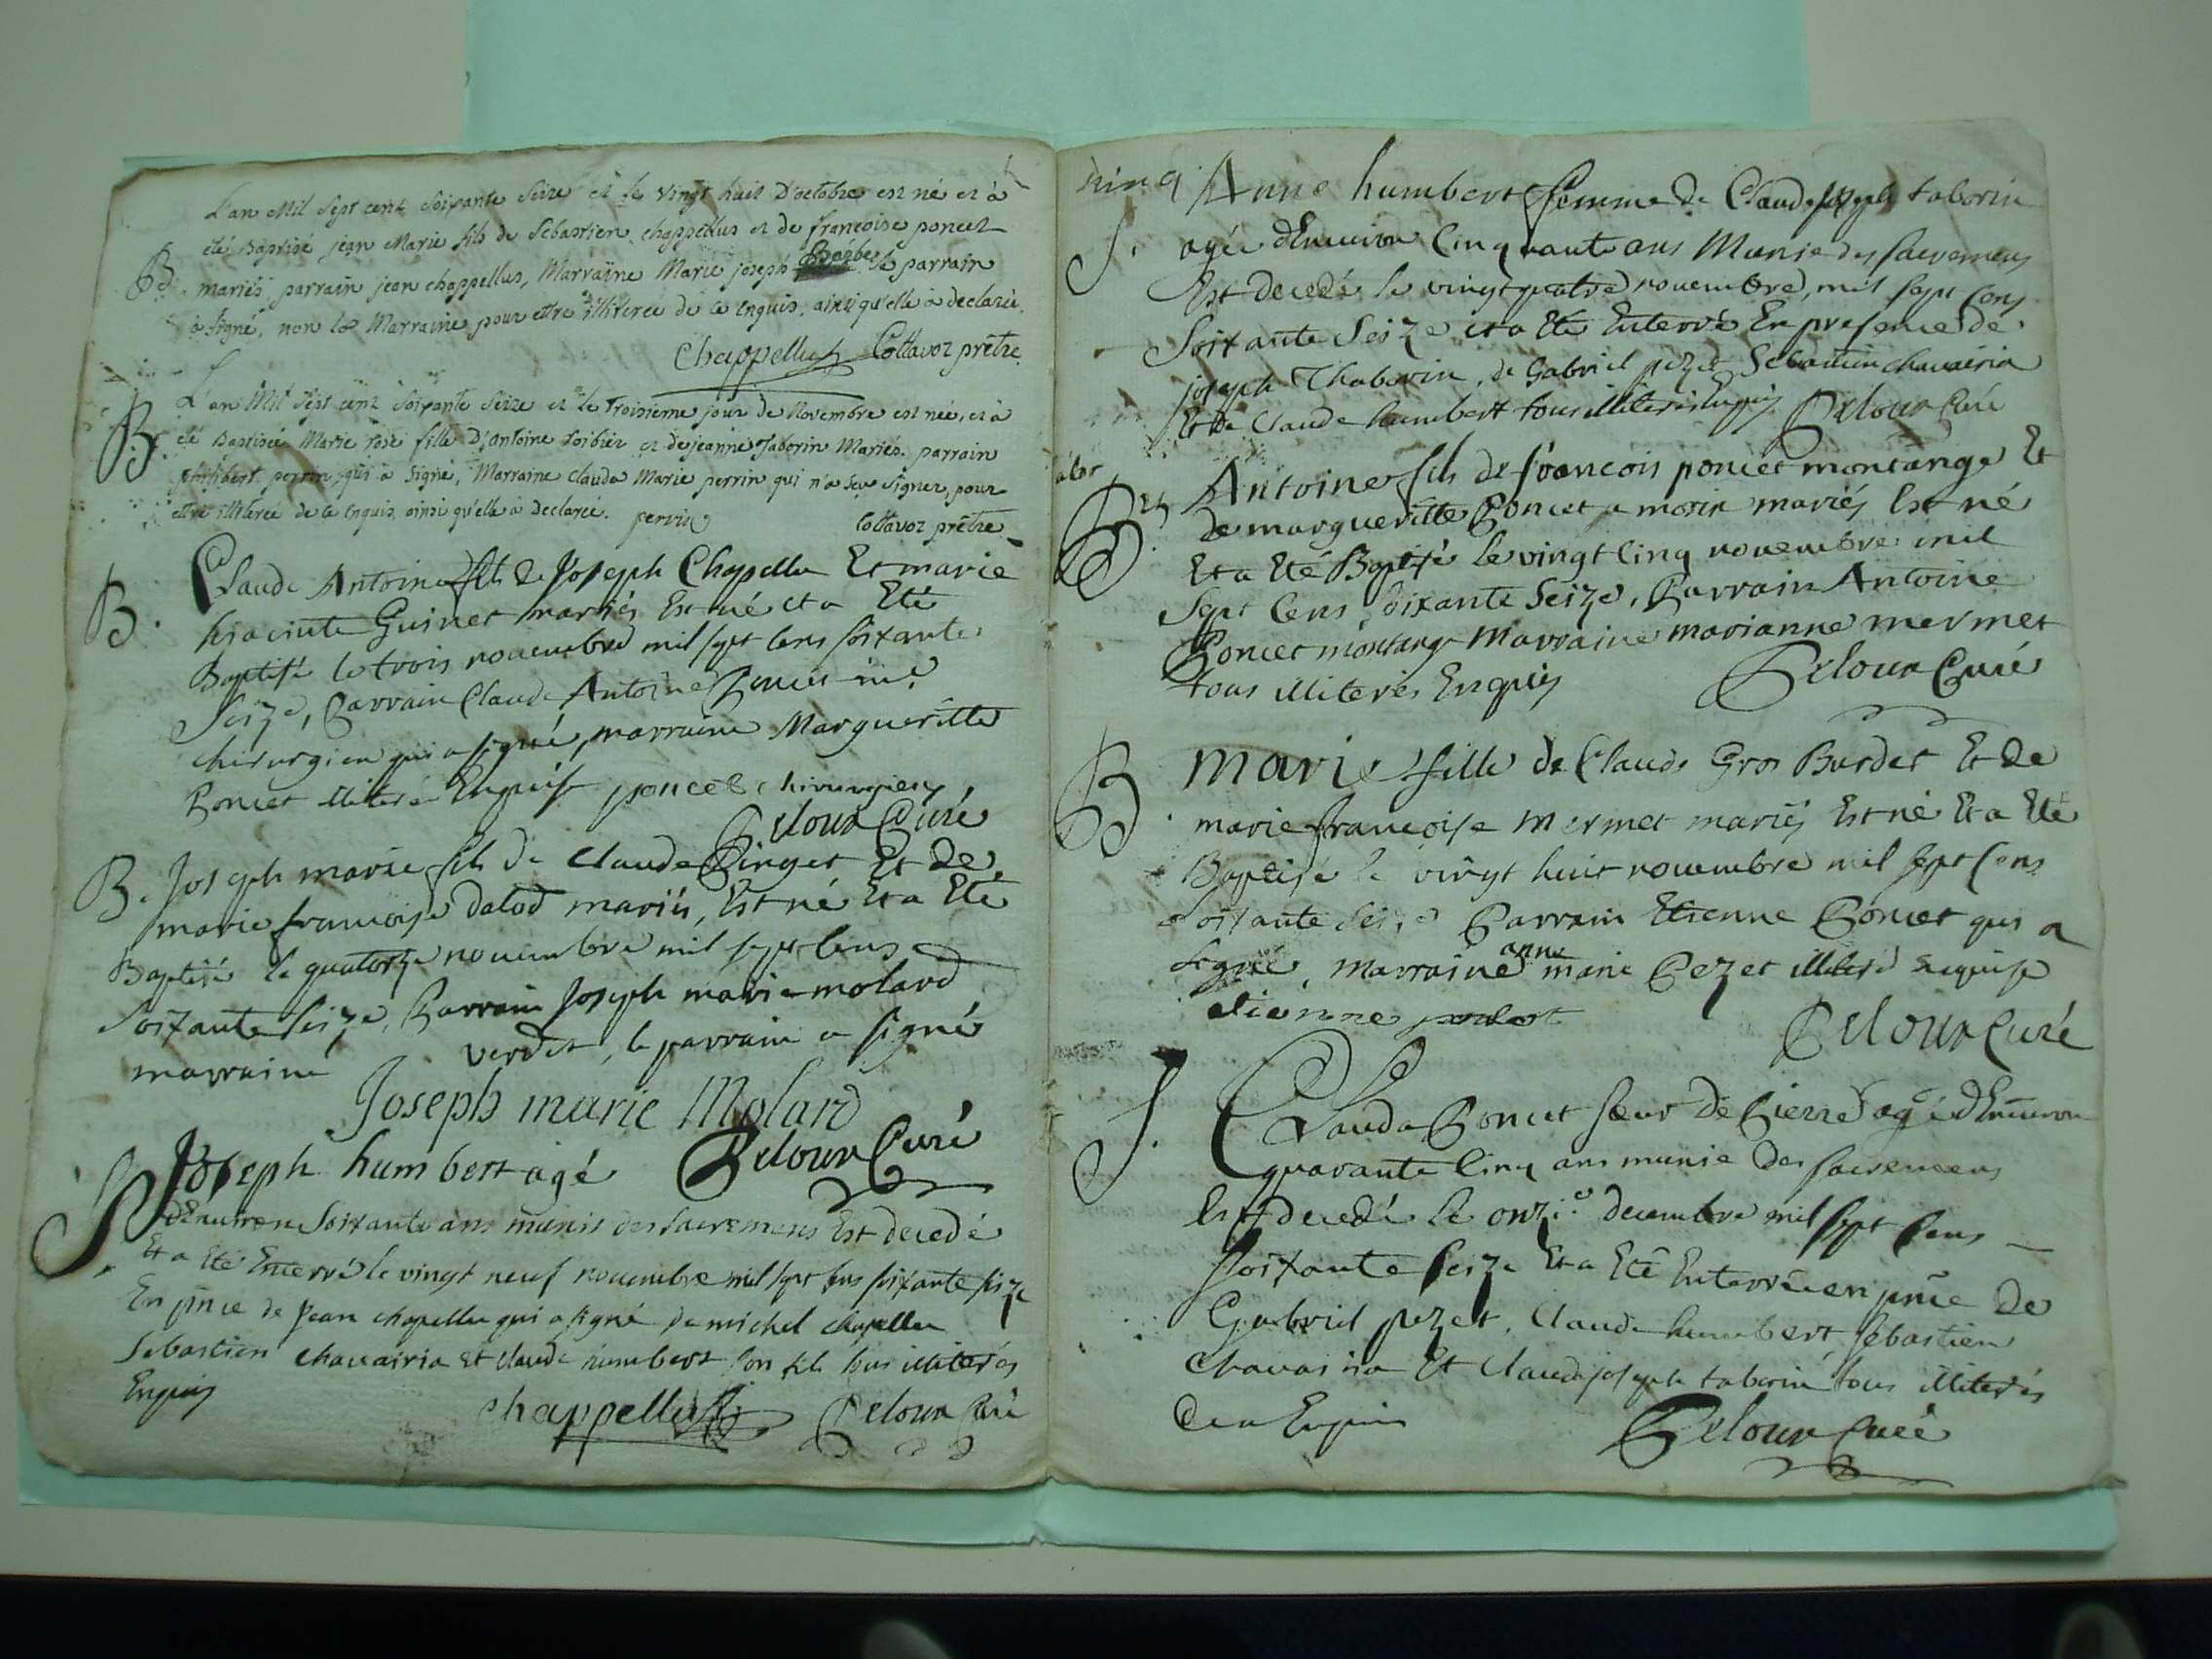 L'an Mil Sept cent soixante Seize et le vingt huit D'octobre est né et à
été Baptisé jean Marie fils de Sebastien chappellus et de francoise poncet
B. mariés parrain jean chappellus, Marraine Marie joseph le parrain
à signé, non la Marraine pour ettre illiteree de ce enquis, ainsi qu'elle à declarée.
Chappellus Collavoz prêtre
L'an Mil Sept cent Soixante Seize et le Troisieme jour de Novembre est née, et à
B. eté Baptisée Marie rose fille D'antoine Loibier et de jeanne Taborin Mariés. parrain
philibert perrin qui à signé, Marraine Claude Marie perrin qui n'a sçu signer, pour
ettre illiteree de ce enquis ainsi qu'elle à declarée. perrin Collavoz prêtre
Claude Antoine fils de Joseph Chapellu Et marie
B. hiacinte Guinet mariés Est né et a Eté
Baptisé le trois novembre mil sept cens soixante
Seize, Parrain Claude Antoine Poncet
chirurgien qui a signé, marraine Margueritte
Poncet illiteré Enquise poncet chirurgien
Pelour Curé
B. Joseph marie fils de Claude Pinget Et de
marie francoise dalod mariés, Est né Et a Eté
Baptisé le quatorze novembre mil sept cens
soixante seize, Parrain Joseph marie molard
marraine verdet, le parrain a signé
Joseph marie Molard
Joseph humbert agé Pelour Curé
S. d'Environ soixante ans munis des sacremens Est decedé
Et a Eté Enterré le vingt neuf novembre mil sept cens soixante seize
En pnce de Jean chapellu qui a signé de michel chapellu
Sebastien chavairia et claude humbert son fils tous illiterés
Enquis chappellus Pelour Curé
Anne humbert femme de Claude joseph taborin
S. agée d'Environ Cinquante ans Munie des sacremens
Est decedé le vingt quatre novembre, mil sept cens
Soixante Seize et a Eté Enterré En presence de
joseph Thaborin, de Gabriel pezet Sebastien chavairia
Et de Claude humbert tous illiterés Enquis Pelour Curé
Antoine fils de francois poncet montange Et
B. de margueritte Poncet a morin mariés Est né
Et a Eté Baptisé le vingt cinq novembre mil
Sept Cens soixante Seize, Parrain Antoine
Poncet montange Marraine marianne mermet
tous illiterés Enquis Pelour Curé
B. marie fille de Claude Gros Burdet Et de
marie francoise mermet mariés Est né Et a Eté
Baptisé le vingt huit novembre mil sept cens
soixante seize Parrain Etienne Poncet qui a
anne
signé, marraine marie Pezet illiteré enquise
etienne Pelour Curé
S. Clauda Poncet sœur de Pierre agé d'Environ
quarante Cinq ans munie des sacremens
Est decedé le onzie decembre mil sept Cens
soixante seize Et a Eté Enterrée en pnce de
Gabriel pezet, Claude humbert, sebastien
chavairia Et Claude joseph taborin tous illiterés
de ce Enquis Pelour Curé